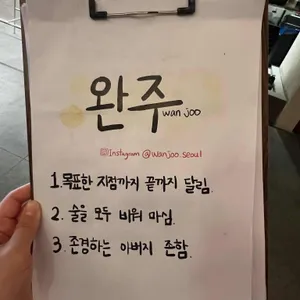 완주
wan joo
Instagram @wanjoo.seoul
1. 목표한 지점까지 끝까지 달림.
2. 술을 모두 비워 마심.
3. 존경하는 아버지 존함.